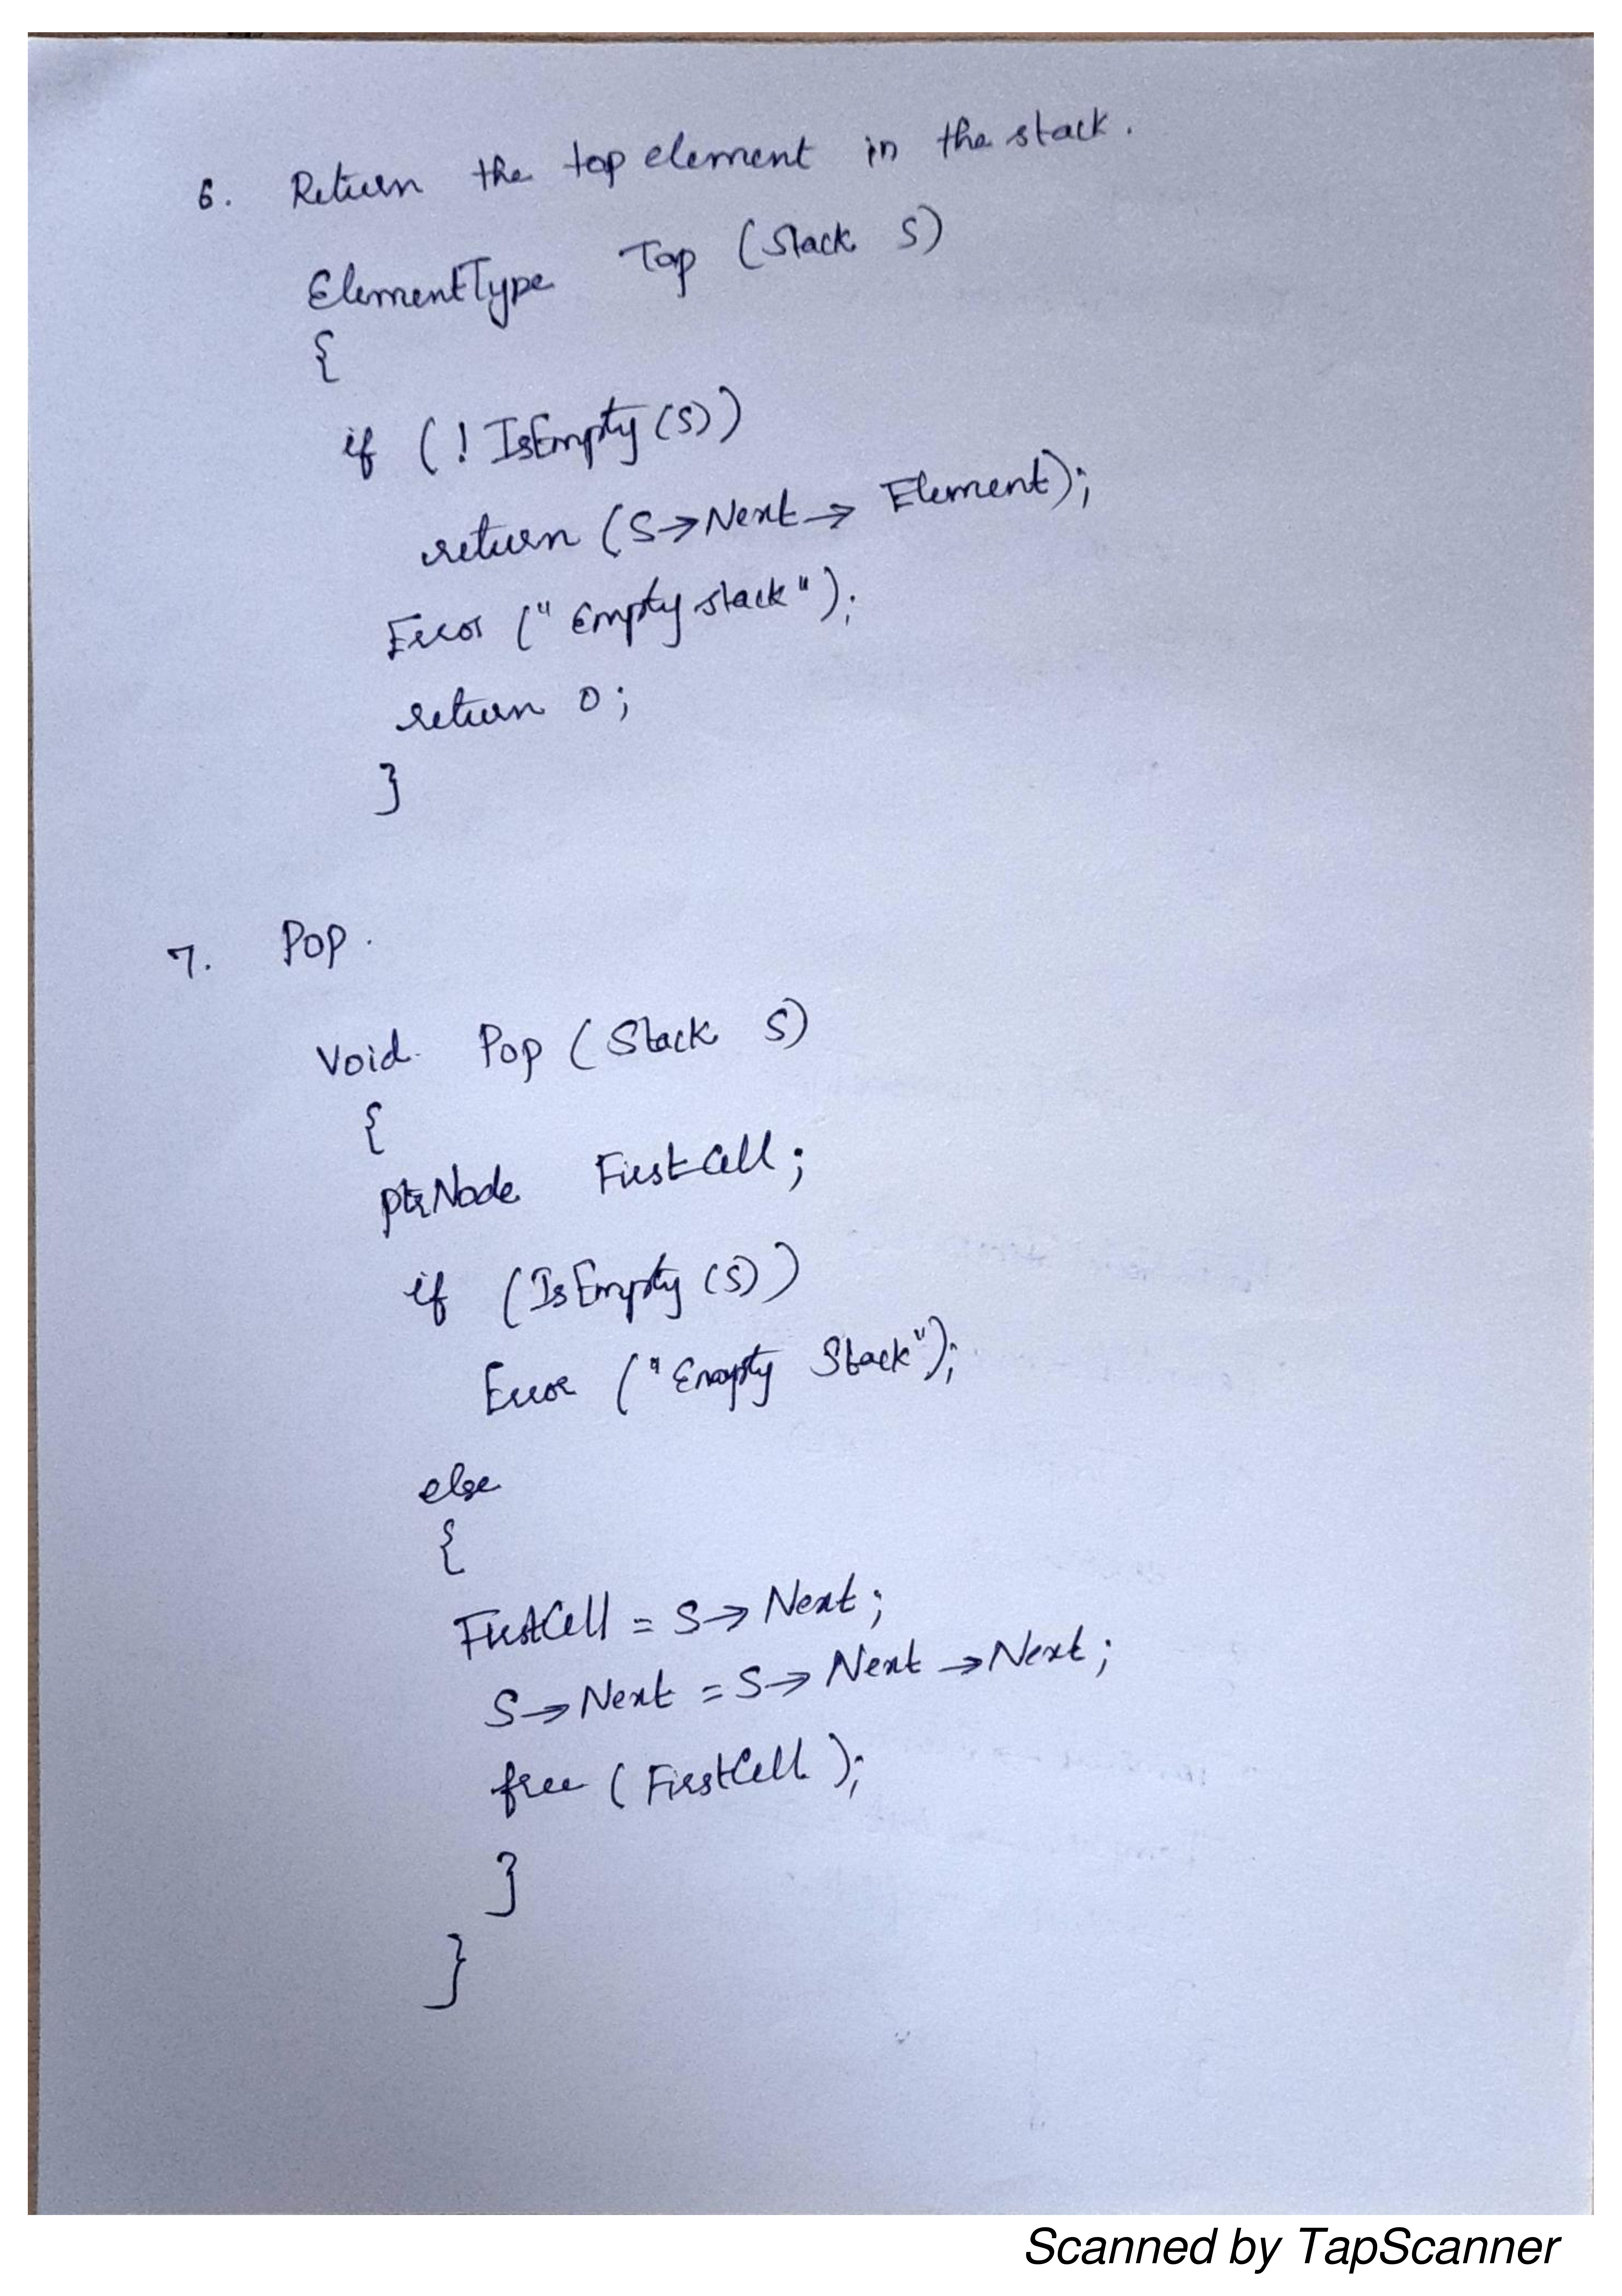 6. Return the top element in the stack.
ElementType Top (Stack S)
{
if (! IsEmpty (S))
return (S→Next→ Element);
Error ("Empty stack");
return 0;
}
7. Pop.
Void Pop (Stack S)
{
ptrNode FirstCell;
if (IsEmpty (S))
Error ("Empty Stack");
else
{
FirstCell = S→ Next;
S→Next = S→ Next →Next;
free (FirstCell);
}
}
Scanned by TapScanner